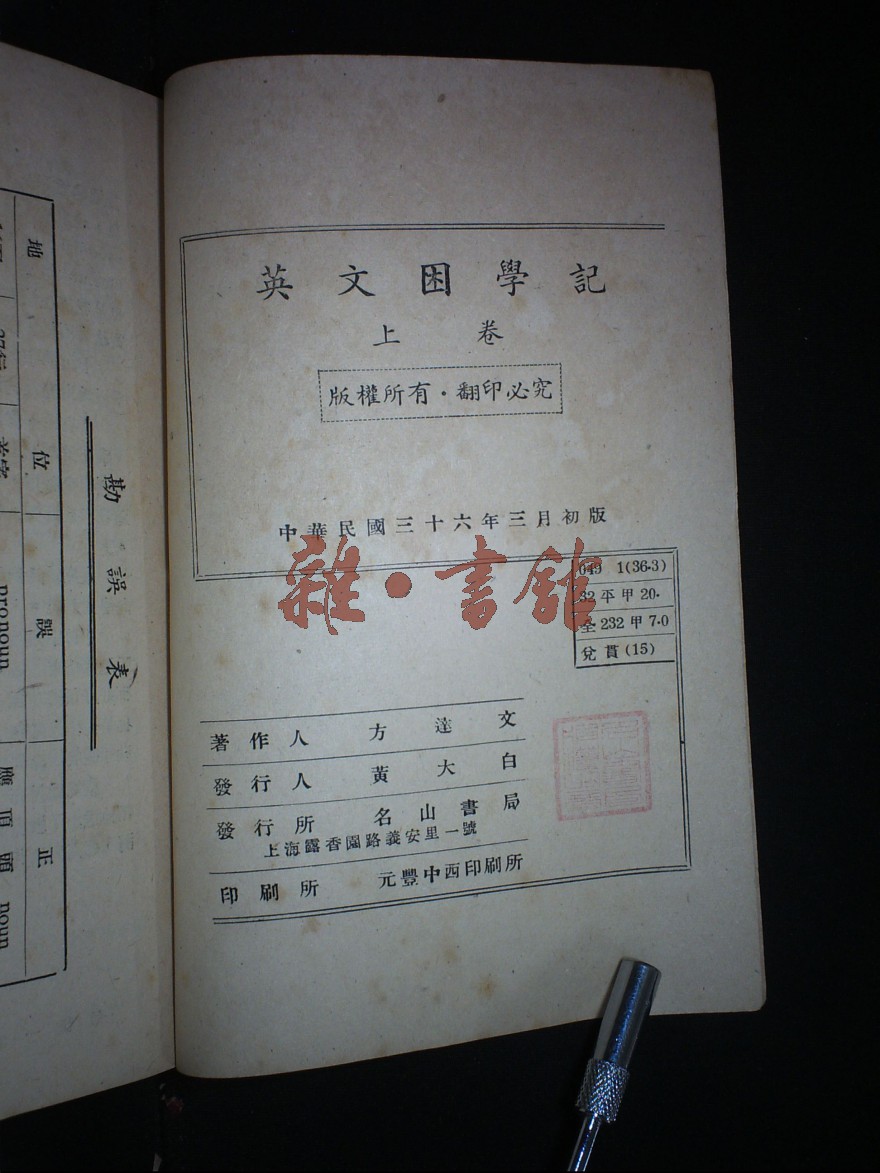 英文困學記
上卷
版權所有·翻印必究
中華民國三十六年三月初版
雜·書館
049 1(36·3)
32 平甲 20·
全 232 甲 7·0
兌貫(15)
著作人 方達文
發行人 黃大白
發行所 名山書局
上海露香園路義安里一號
印刷所 元豐中西印刷所
勘誤表
地位
誤
正
pronoun
noun